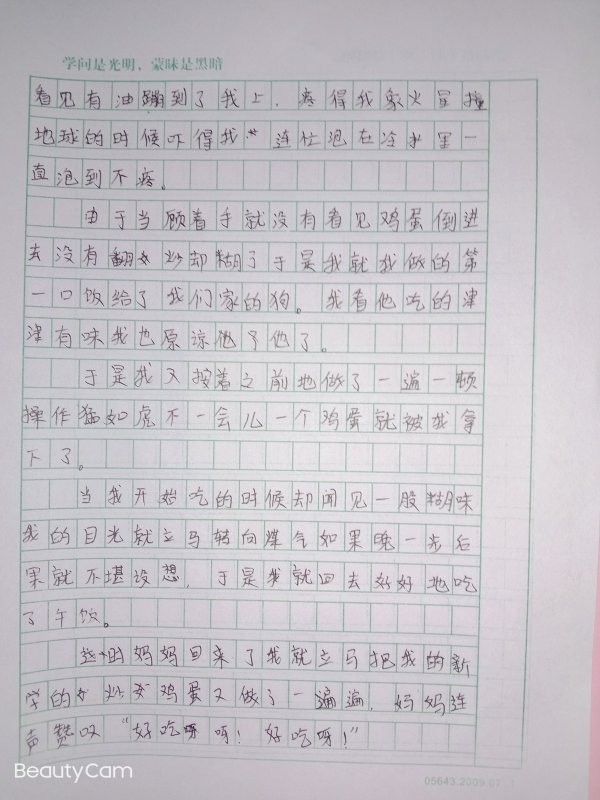 学问是光明，蒙昧是黑暗
看见有油蹦到了我上，疼得我象火星撞
地球的时候吓得我 连忙泡在冷水里一
直泡到不疼。
由于当顾着手就没有看见鸡蛋倒进
去没有翻 炒却糊了于是我就我做的第
一口饭给了我们家的狗。我看他吃的津
津有味我也原谅他了他了。
于是我又按着之前地做了一遍一顿
操作猛如虎不一会儿一个鸡蛋就被我拿
下了。
当我开始吃的时候却闻见一股糊味
我的目光就立马转向煤气如果晚一步后
果就不堪设想，于是我就回去好好地吃
了午饭。
时妈妈回来了我就立马把我的新
学的 炒 鸡蛋又做了一遍遍，妈妈连
声赞叹“好吃呀呀！好吃呀！”
BeautyCam
05643.2009.07